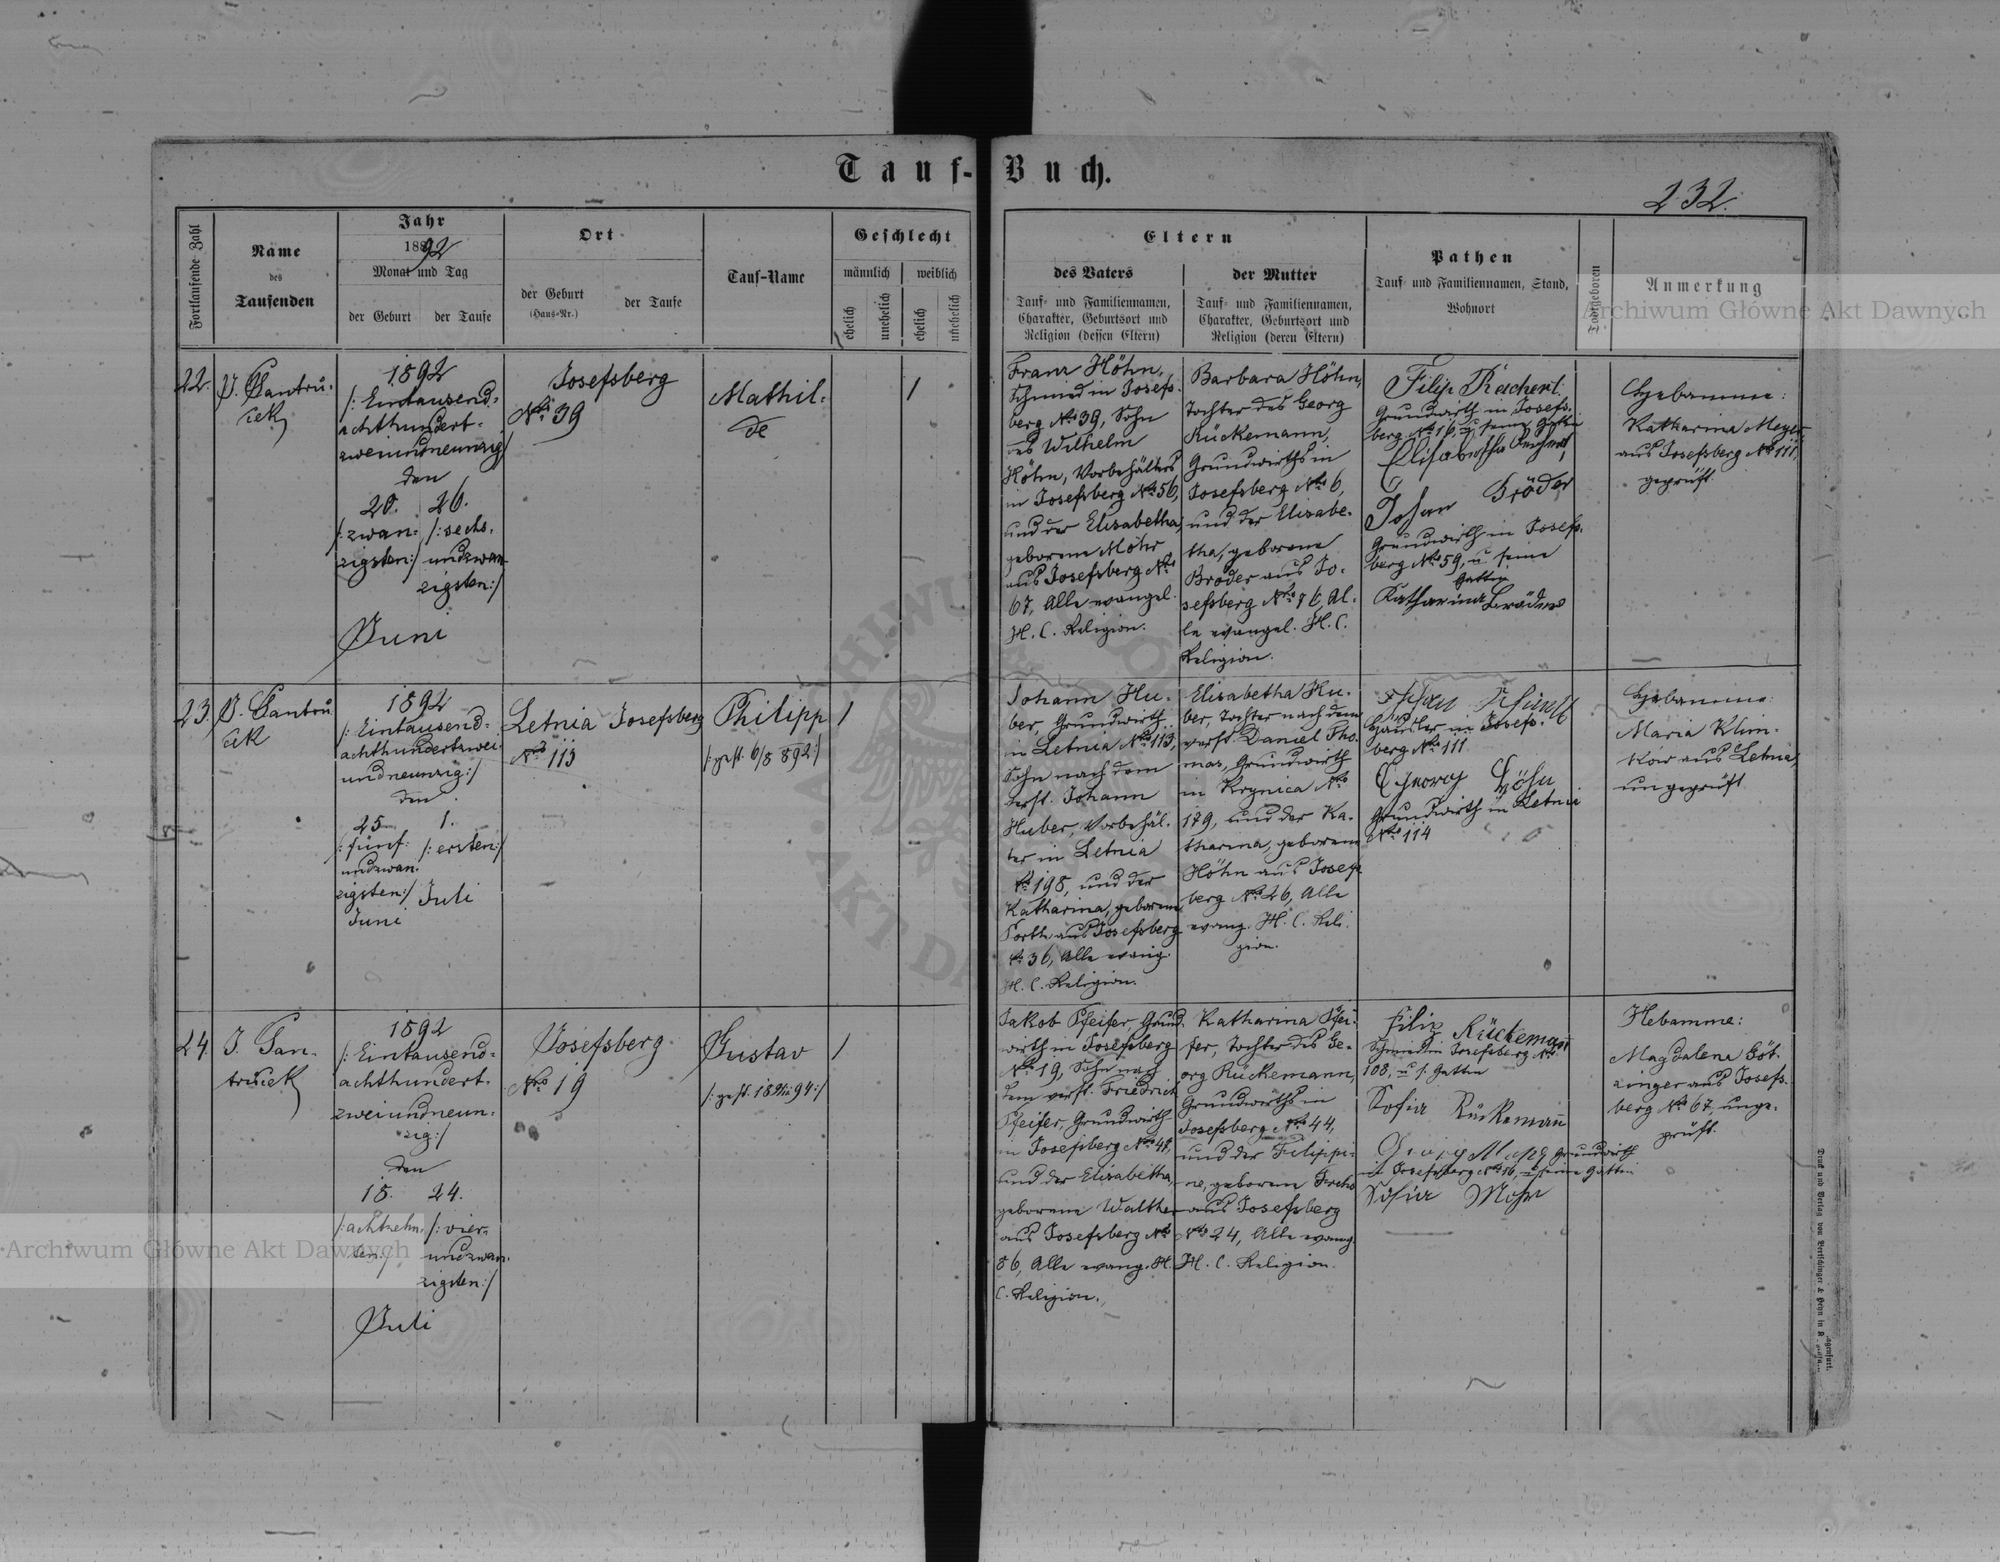 Tauf-Buch.
232.
Fortlaufende Zahl
Name
des
Taufenden
Jahr
1892
Monat und Tag
der Geburt
der Taufe
Ort
der Geburt
(Haus-Nr.)
der Taufe
Tauf-Name
Geschlecht
männlich
weiblich
ehelich
unehelich
ehelich
unehelich
Eltern
des Vaters
Tauf- und Familiennamen,
Charakter, Geburtsort und
Religion (dessen Eltern)
der Mutter
Tauf- und Familiennamen,
Charakter, Geburtsort und
Religion (deren Eltern)
Pathen
Tauf- und Familiennamen, Stand,
Wohnort
Todtgeboren
Anmerkung
22.
1892
/: Eintausend-
achthundert-
zweiundneunzig/
den
20. 26.
/: zwan- /: sechs-
zigsten:/ undzwan-
zigsten:/
Juni
Josefsberg
Nro 39
Mathil-
de
1
Franz Höhn,
Schmied in Josefs-
berg Nro 39, Sohn
des Wilhelm
Höhn, Vorbehälters
in Josefsberg Nro 56,
und der Elisabetha,
geborene Mohr
aus Josefsberg Nro
67, Alle evangel.
H. C. Religion.
Barbara Höhn,
Tochter des Georg
Rückemann,
Grundwirths in
Josefsberg Nro 6,
und der Elisabe-
tha, geborene
Bröder aus Jo-
sefsberg Nro 76, Al-
le evangel. H. C.
Religion.
Filip Reichert
Grundwirth in Josefs-
berg Nro 16, u seine Gattin
Elisabetha Reichert,
Johan Bröder
Grundwirth in Josefs-
berg Nro 59, u seine
Gattin
Katharina Bröder
Hebamme:
Katharina Meyer
aus Josefsberg Nro 111,
geprüft.
23.
1892
/: Eintausend-
achthundertzwei-
undneunzig:/
den
25 1.
/: fünf- /: ersten:/
undzwan-
zigsten:/ Juli
Juni
Letnia Josefsberg
Nro 113
Philipp
/: gest. 6/8 892:/
1
Johann Hu-
ber, Grundwirth
in Letnia Nro 113,
Sohn nach dem
verst. Johann
Huber, Vorbehäl-
ter in Letnia
No 198, und der
Katharina, geborene
Porth aus Josefsberg
No 36, Alle evang.
H. C. Religion.
Elisabetha Hu-
ber, Tochter nach dem
verst. Daniel Tho-
mas, Grundwirth
in Krynica Nro
179, und der Ka-
tharina, geborene
Höhn aus Josefs-
berg Nro 26, Alle
evang. H. C. Reli-
gion.
Häusler in Josefs-
berg Nro 111
Georg Höhn
Grundwirth in Letnia
Nro 114
Hebamme:
Maria Klim-
ków aus Letnia,
ungeprüft
24.
1892
/: Eintausend-
achthundert-
zweiundneun-
zig:/
den
18. 24.
/: achtzehn- /: vier-
ten:/ undzwan-
zigsten:/
Juli
Josefsberg
Nro 19
Gustav
1
Jakob Pfeifer, Grund-
wirth in Josefsberg
Nro 19, Sohn nach
dem verst. Friedrich
Pfeifer, Grundwirth
in Josefsberg Nro 48,
und der Elisabetha,
geborene Walther
aus Josefsberg Nro
86, Alle evang. H.
C. Religion.
Katharina Pfei-
fer, Tochter des Ge-
org Rückemann,
Grundwirths in
Josefsberg Nro 44,
und der Filippi-
ne, geborene
aus Josefsberg
Nro 24, Alle evang.
H. C. Religion.
Filip Rückemann
Schmied in Josefsberg Nro
108, u s. Gattin
Sofia Rückemann
Georg Grundwirth
in Josefsberg Nro 16, u seine Gattin
Sofia Mohr
Hebamme:
Magdalena Göt-
zinger aus Josefs-
berg Nro 67, unge-
prüft.
Archiwum Główne Akt Dawnych
Archiwum Główne Akt Dawnych